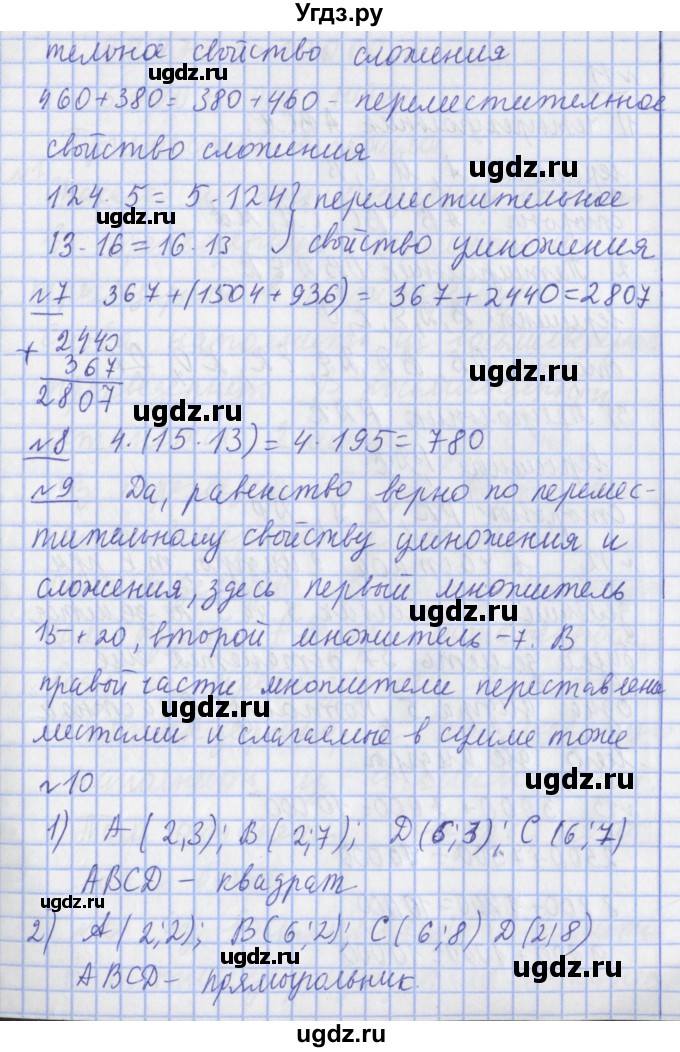 Угдз.ру
тельное свойство сложения
ugdz.ru
460+380=380+460 - переместительное
свойство сложения
ugdz.ru
124·5=5·124} переместительное
ugdz.ru
13·16=16·13 свойство умножения
№7 367+(1504+936)=367+2440=2807
+ 2440
367
ugdz.ru
2807
ugdz.ru
№8 4·(15·13)=4·195=780
№9 Да, равенство верно по перемес-
ugdz.ru
тительному свойству умножения и
сложения, здесь первый множитель
ugdz.ru
15+20, второй множитель - 7. В
правой части множители переставлены
ugdz.ru
местами и слагаемые в сумме тоже
№10
ugdz.ru
1) A(2,3); B(2;7); D(6;3); C(6;7)
ABCD - квадрат
ugdz.ru
2) A(2;2); B(6;2); C(6;8) D(2;8)
ugdz.ru
ABCD - прямоугольник.
ugdz.ru
ugdz.ru